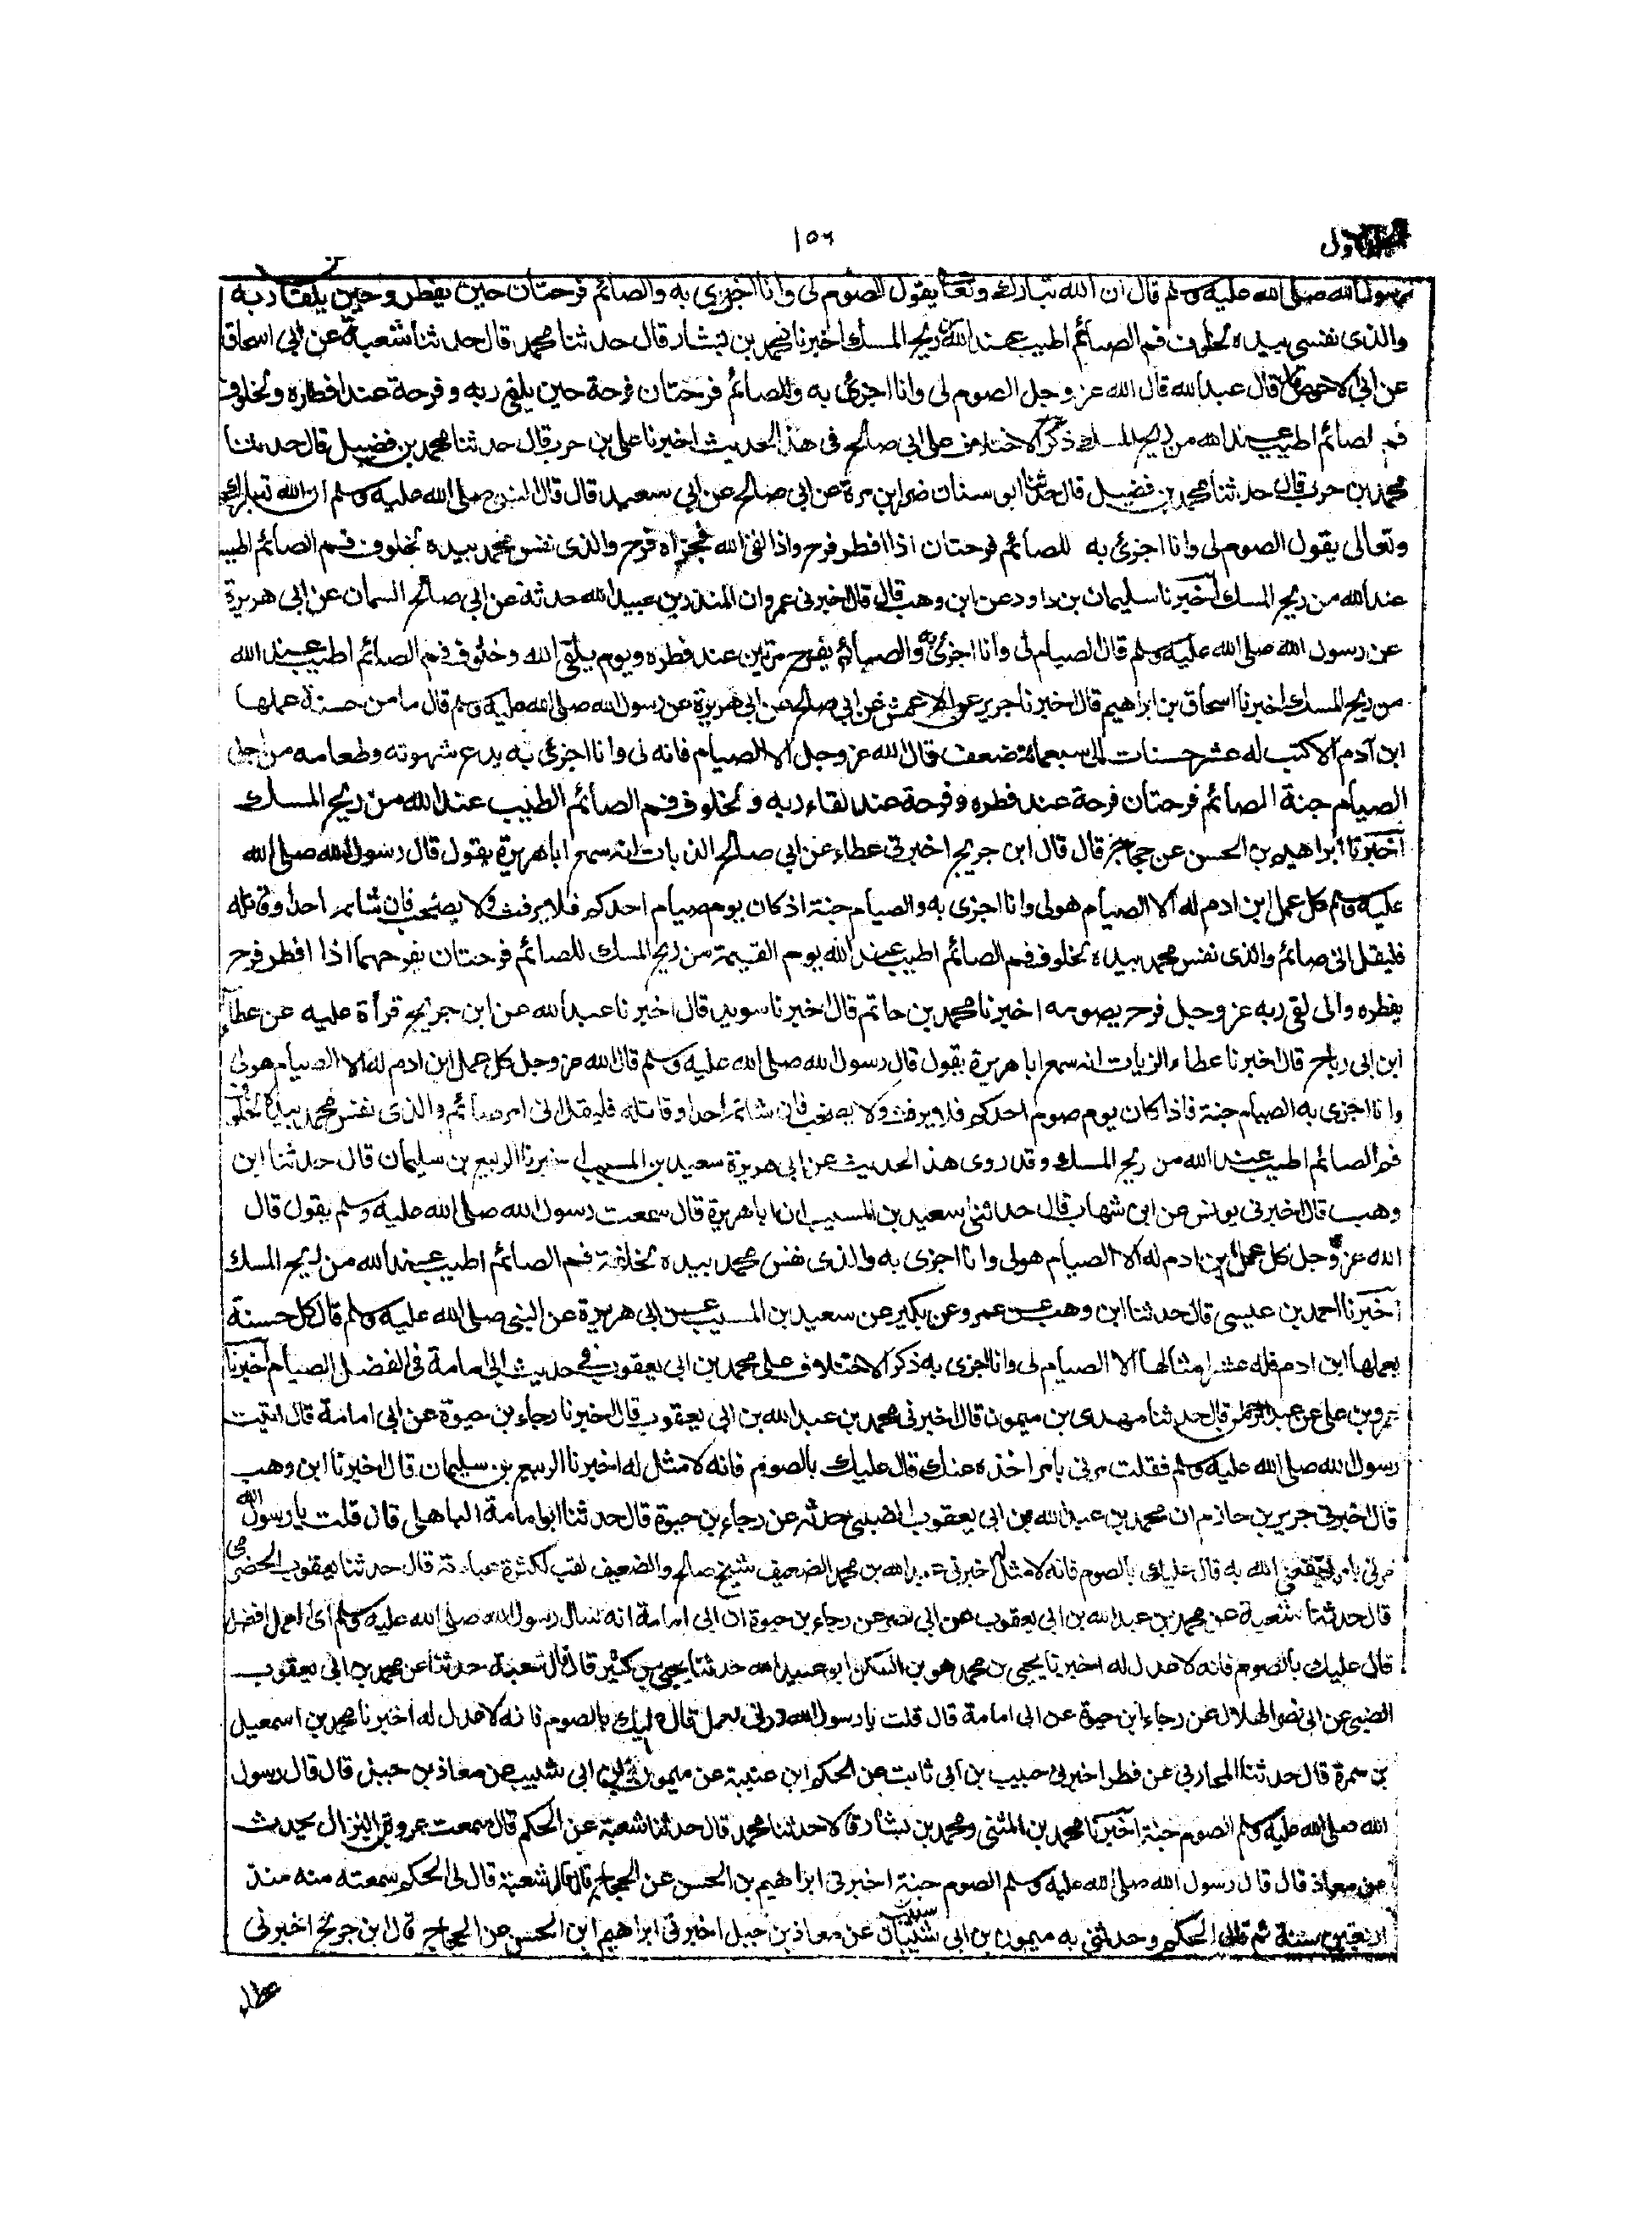 ١٥٦
رسول الله صلى الله عليه وسلم قال ان الله تبارك وتعالى يقول الصوم لى وانا اجزى به والصائم فرحتان حين يفطر وحين يلقا ربه
والذى نفسى بيده لخلوف فم الصائم اطيب عند الله من ريح المسك اخبرنا محمد بن بشار قال حدثنا محمد قال حدثنا شعبة عن ابى اسحاق
عن ابى الاحوص قال قال عبد الله قال الله عز وجل الصوم لى وانا اجزئ به وللصائم فرحتان فرحة حين يلقى ربه وفرحة عند افطاره ولخلوف
فم لصائم اطيب عند الله من ريح المسك ذكر الاختلاف على ابى صالح فى هذا الحديث اخبرنا على بن حرب قال حدثنا محمد بن فضيل قال حدثنا
محمد بن حرب قال حدثنا محمد بن فضيل قال حدثنا ابو سنان ضرابن مرة عن ابى صالح عن ابى سعيد قال قال النبى صلى الله عليه وسلم ان الله تبارك
وتعالى يقول الصوم لى وانا اجزئ به للصائم فرحتان اذا افطر فرح واذا لقى الله فجزاه فرح والذى نفس محمد بيده لخلوف فم الصائم اطيب
عند الله من ريح المسك اخبرنا سليمان بن داود عن ابن وهب قال قال اخبرنى عمرو ان المنذر بن عبيد الله حدثه عن ابى صالح السمان عن ابى هريرة
عن رسول الله صلى الله عليه وسلم قال الصيام لى وانا اجزئ به والصائم يفرح مرتين عند فطره ويوم يلقى الله وخلوف فم الصائم اطيب عند الله
من ريح المسك اخبرنا اسحاق بن ابراهيم قال اخبرنا جرير عن الاعمش عن ابى صالح عن ابى هريرة عن رسول الله صلى الله عليه وسلم قال ما من حسنة عملها
ابن آدم الا كتب له عشر حسنات الى سبعمائة ضعف قال الله عز وجل الا الصيام فانه لى وانا اجزئ به يدع شهوته وطعامه من اجلى
الصيام جنة الصائم فرحتان فرحة عند فطره وفرحة عند لقاء ربه ولخلوف فم الصائم اطيب عند الله من ريح المسك
اخبرنا ابراهيم بن الحسن عن حجاج قال قال ابن جريج اخبرنى عطاء عن ابى صالح الزيات انه سمع اباهريرة يقول قال رسول الله صلى الله
عليه وسلم كل عمل ابن ادم له الا الصيام هولى وانا اجزى به والصيام جنة اذ كان يوم صيام احدكم فلا يرفث ولا يصخب فان شاتمه احد او قاتله
فليقل انى صائم والذى نفس محمد بيده لخلوف فم الصائم اطيب عند الله يوم القيمة من ريح المسك للصائم فرحتان يفرحهما اذا افطر فرح
بفطره والى لقى ربه عز وجل فرح بصومه اخبرنا محمد بن حاتم قال اخبرنا سويد قال اخبرنا عبد الله عن ابن جريج قرأة عليه عن عطاء
ابن ابى رباح قال اخبرنا عطاء الزيات انه سمع ابا هريرة يقول قال رسول الله صلى الله عليه وسلم قال الله عز وجل كل عمل ابن ادم له الا الصيام هولى
وانا اجزى به الصيام جنة فاذا كان يوم صوم احدكم فلا يرفث ولا يصخب فان شاتمه احد او قاتله فليقل انى امر صائم والذى نفس محمد بيده لخلوف
فم الصائم اطيب عند الله من ريح المسك وقد روى هذا الحديث عن ابى هريرة سعيد بن المسيب اخبرنا الربيع بن سليمان قال حدثنا ابن
وهب قال اخبرنى يونس عن ابن شهاب قال حدثنى سعيد بن المسيب ان اباهريرة قال سمعت رسول الله صلى الله عليه وسلم يقول قال
الله عز وجل كل عمل ابن ادم له الا الصيام هولى وانا اجزى به والذى نفس محمد بيده لخلفة فم الصائم اطيب عند الله من ريح المسك
اخبرنا احمد بن عيسى قال حدثنا ابن وهب عن عمرو عن بكير عن سعيد بن المسيب عن ابى هريرة عن النبى صلى الله عليه وسلم قال كل حسنة
يعملها ابن ادم فله عشر امثالها الا الصيام لى وانا اجزى به ذكر الاختلاف على محمد بن ابى يعقوب فى حديث ابى امامة فى الفضل الصيام اخبرنا
عمرو بن على عن عبد الرحمن قال حدثنا مهدى بن ميمون قال اخبرنى محمد بن عبد الله بن ابى يعقوب قال اخبرنا رجاء بن حيوة عن ابى امامة قال اتيت
رسول الله صلى الله عليه وسلم فقلت مرنى بامر اخذه عنك قال عليك بالصوم فانه لا مثل له اخبرنا الربيع بن سليمان قال اخبرنا ابن وهب
قال اخبرنى جرير بن حازم ان محمد بن عبد الله بن ابى يعقوب الضبى حدثه عن رجاء بن حيوة قال حدثنا ابو امامة الباهلى قال قلت يا رسول الله
مرنى بامر ينفعنى الله به قال عليك بالصوم فانه لا مثل له اخبرنى عبد الله بن محمد الضعيف شيخ صالح والضعيف لقب لكثرة عبادته قال حدثنا يعقوب الحضرمى
قال حدثنا شعبة عن محمد بن عبد الله بن ابى يعقوب عن ابى نصر عن رجاء بن حيوة ان ابى امامة انه سال رسول الله صلى الله عليه وسلم اى العمل افضل
قال عليك بالصوم فانه لا عدل له اخبرنا يحيى بن محمد هو بن السكن ابو عبيد الله حدثنا يحيى بن كثير قال قال شعبة حدثنا عن محمد بن ابى يعقوب
الضبى عن ابى نصر الهلال عن رجاء ابن حيوة عن ابى امامة قال قلت يا رسول الله مرنى بعمل قال عليك بالصوم فانه لا عدل له اخبرنا محمد بن اسمعيل
بن سمرة قال حدثنا المحاربى عن فطر اخبرنى حبيب بن ابى ثابت عن الحكم ابن عتيبة عن ميمون بن ابى شبيب عن معاذ بن جبل قال قال رسول
الله صلى الله عليه وسلم الصوم جنة اخبرنا محمد بن المثنى ومحمد بن بشار قالا حدثنا محمد قال حدثنا شعبة عن الحكم قال سمعت عروة بن النزال يحدث
عن معاذ قال قال رسول الله صلى الله عليه وسلم الصوم جنة اخبرنى ابراهيم بن الحسن عن الحجاج قال قال شعبة قال لى الحكم سمعته منه منذ
اربعين سنة ثم قال الحكم وحدثنى به ميمون بن ابى شبيب عن معاذ بن جبل اخبرنى ابراهيم ابن الحسن عن الحجاج قال ابن جريج اخبرنى
عطاء